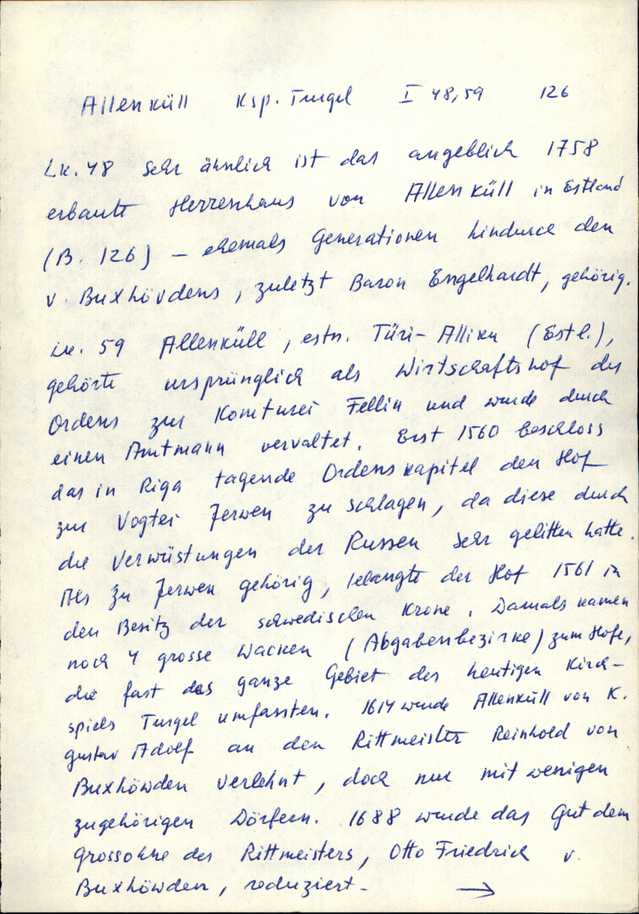 Allenküll Ksp. Turgel I 48,59 126
Lk. 48 Sehr ähnlich ist das angeblich 1758
erbaute Herrenhaus von Allenküll in Estland
(B. 126) — ehemals Generationen hindurch den
v. Buxhövdens, zuletzt Baron Engelhardt, gehörig.
Lk. 59 Allenküll, estn. Türi-Alliku (Estl.),
gehörte ursprünglich als Wirtschaftshof des
Ordens zur Komturei Fellin und wurde durch
einen Amtmann verwaltet. Erst 1560 beschloss
das in Riga tagende Ordenskapitel den Hof
zur Vogtei Jerwen zu schlagen, da diese durch
die Verwüstungen der Russen sehr gelitten hatte.
Als zu Jerwen gehörig, gelangte der Hof 1561 in
den Besitz der schwedischen Krone. Damals kamen
noch 4 grosse Wacken (Abgabenbezirke) zum Hofe,
die fast das ganze Gebiet des heutigen Kirch-
spiels Turgel umfassten. 1614 wurde Allenküll von K.
Gustav Adolf an den Rittmeister Reinhold von
Buxhöwden verlehnt, doch nur mit wenigen
zugehörigen Dörfern. 1688 wurde das Gut dem
Grossohne des Rittmeisters, Otto Friedrich v.
Buxhöwden, reduziert. →